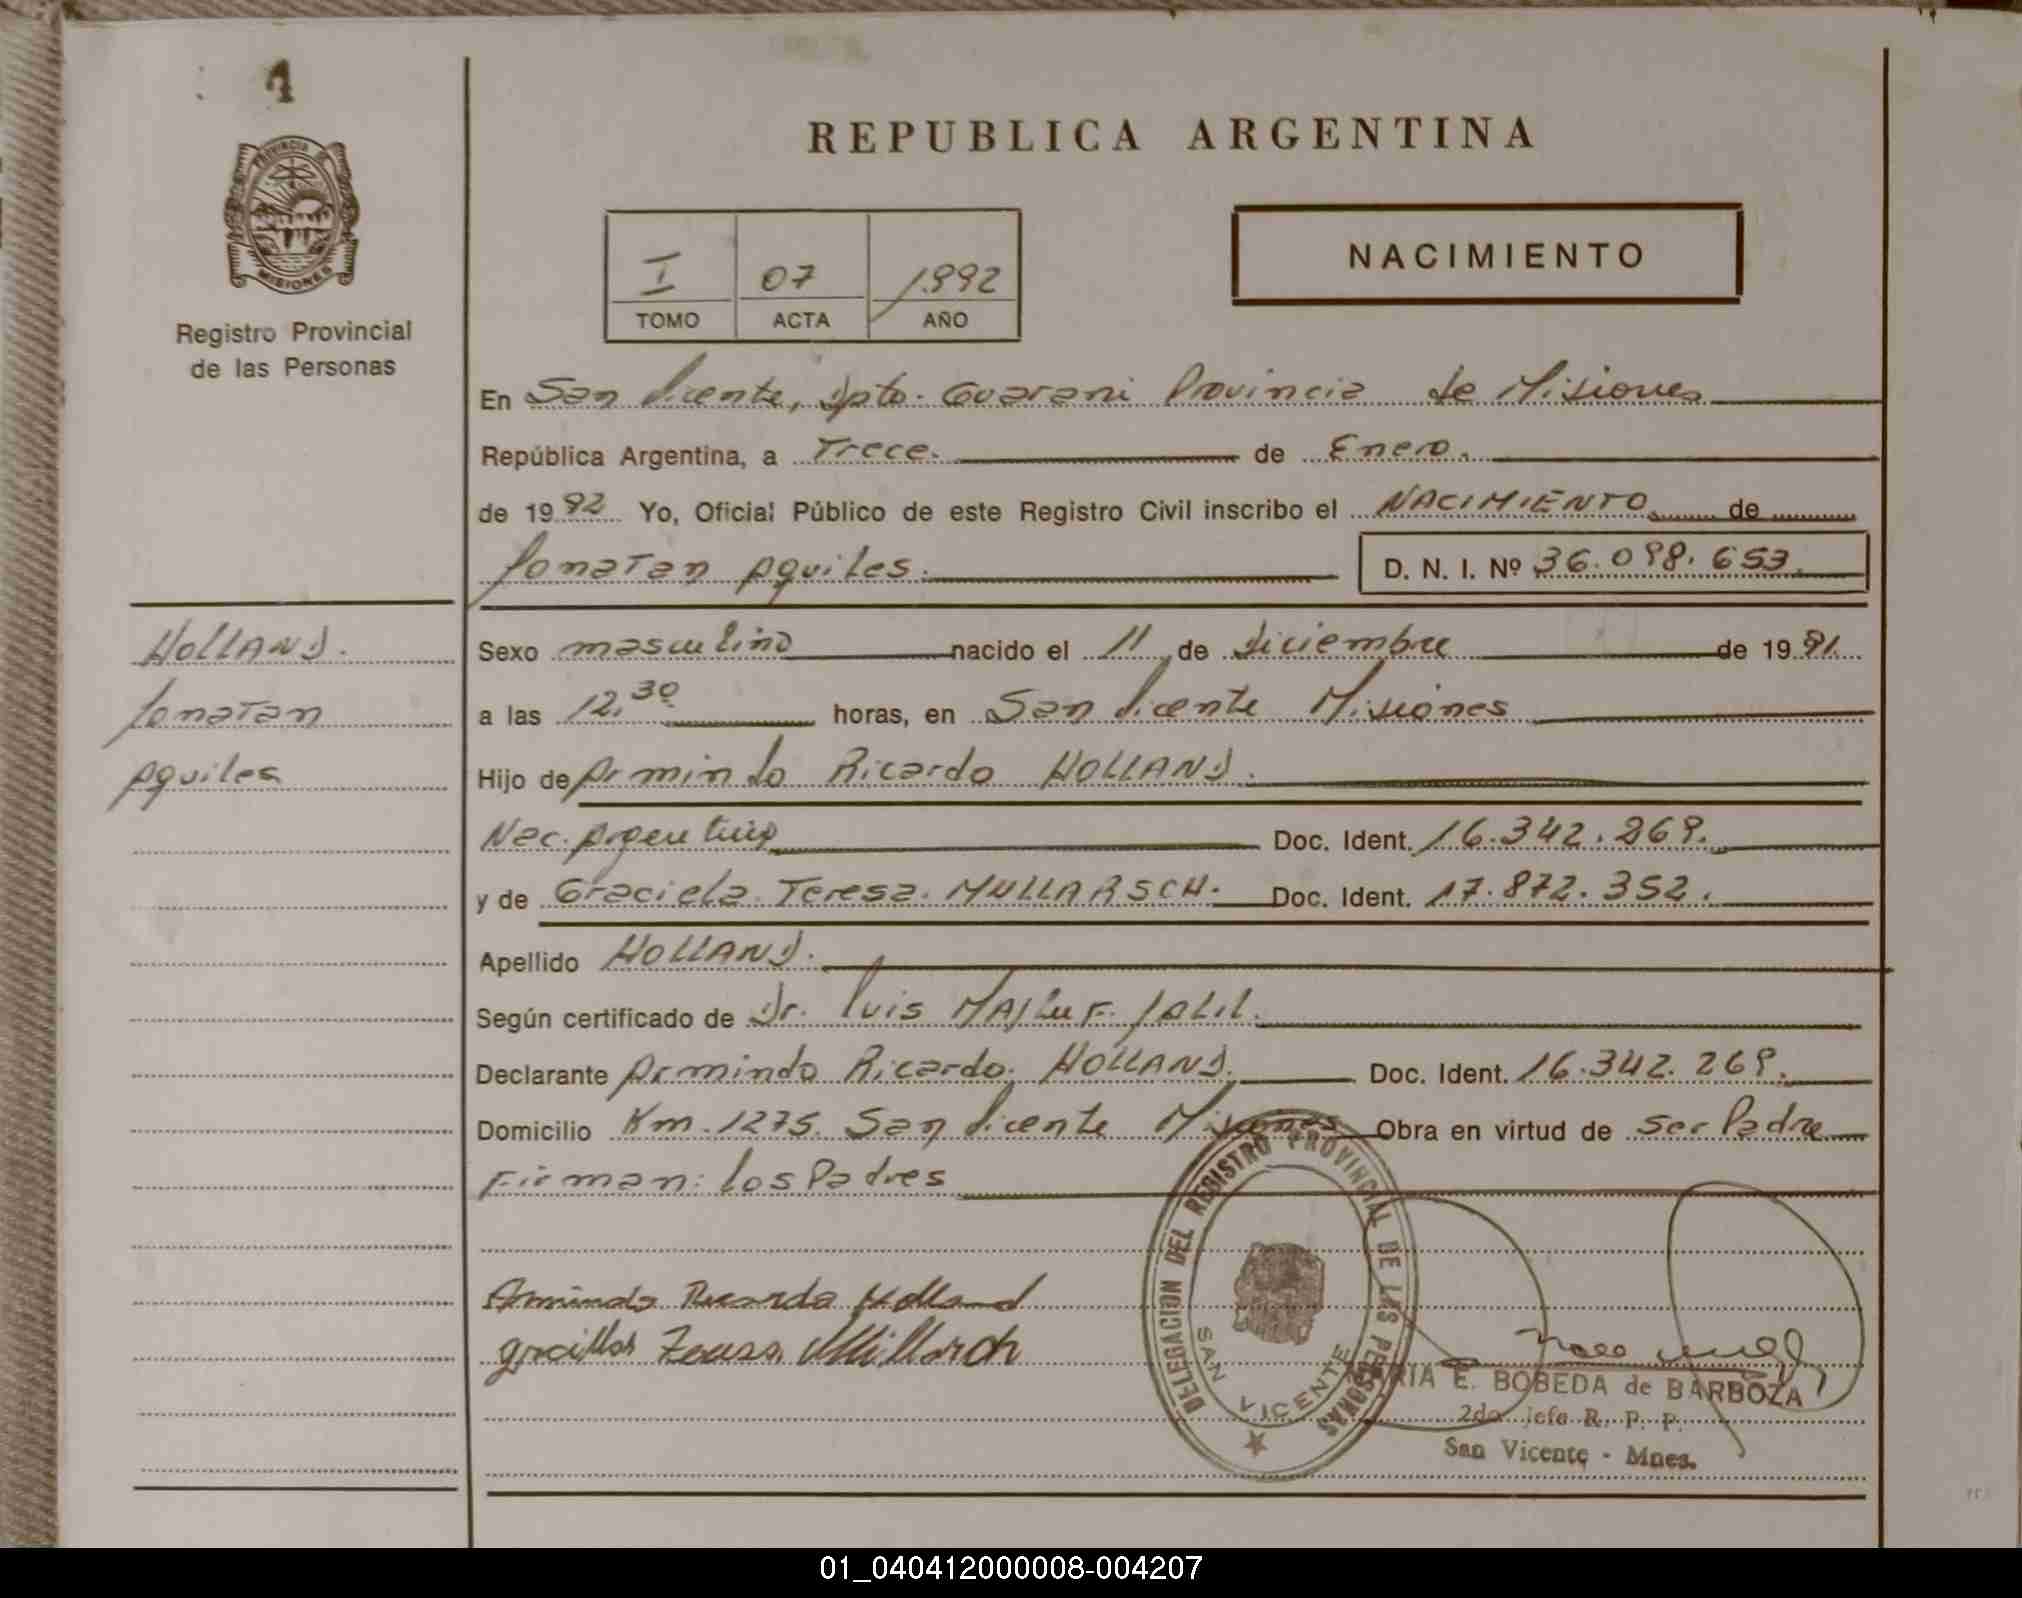 1
PROVINCIA DE
MISIONES
Registro Provincial
de las Personas
HOLLAND.
Jonatan
Aquiles
REPUBLICA ARGENTINA
NACIMIENTO
I 07 1992
TOMO ACTA AÑO
En San Vicente, Dpto. Guarani Provincia de Misiones
República Argentina, a Trece. de Enero.
de 1992 Yo, Oficial Público de este Registro Civil inscribo el NACIMIENTO de
Jonatan Aquiles. D. N. I. Nº 36.098.653.
Sexo masculino nacido el 11 de Diciembre de 1991.
a las 12,30 horas, en San Vicente Misiones
Hijo de Armindo Ricardo HOLLAND.
Nac. Argentino Doc. Ident. 16.342.269.
y de Graciela Teresa. MULLARSCH. Doc. Ident. 17.872.352.
Apellido HOLLAND.
Según certificado de Dr. Luis Jalil.
Declarante Armindo Ricardo. HOLLAND. Doc. Ident. 16.342.269.
Domicilio Km. 1275. San Vicente Misiones Obra en virtud de ser Padre
Firman: los Padres
Armindo Ricardo Holland
DELEGACION DEL REGISTRO PROVINCIAL DE LAS PERSONAS
SAN VICENTE
MARIA E. BOBEDA de BARBOZA
2do Jefe R. P. P.
San Vicente - Mnes.
01_040412000008-004207